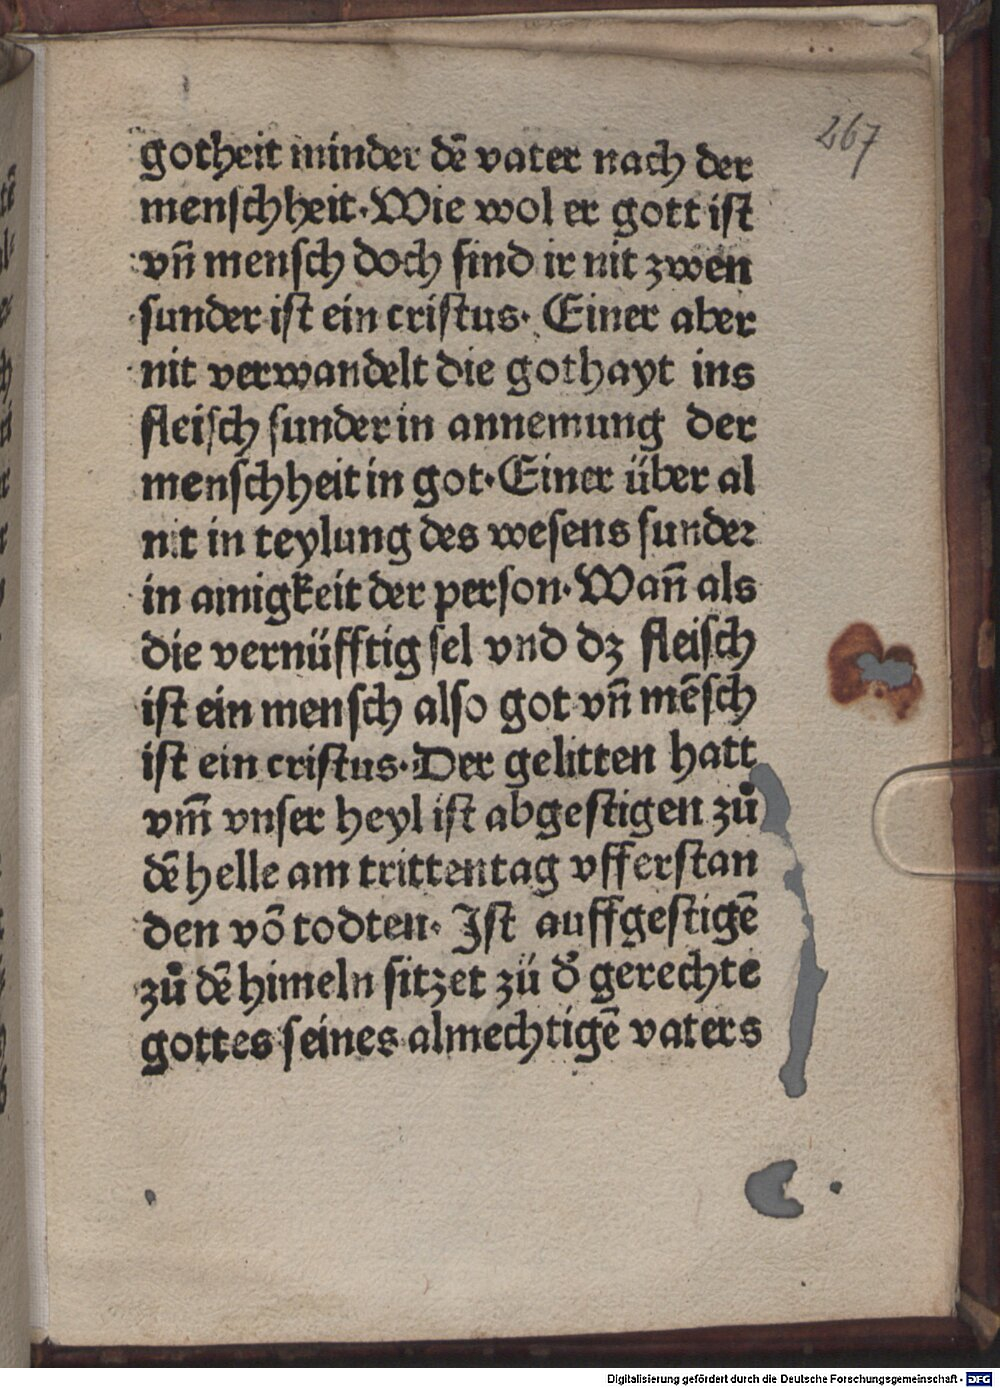 267
gotheit minder dē vater nach der
menschheit. Wie wol er gott ist
vn̄ mensch doch sind ir nit zwen
sunder ist ein cristus. Einer aber
nit verwandelt die gothayt ins
fleisch sunder in annemung der
menschheit in got. Einer über al
nit in teylung des wesens sunder
in amigkeit der person. Wan̄ als
die vernüfftig sel vnd dz fleisch
ist ein mensch also got vn̄ mēsch
ist ein cristus. Der gelitten hatt
vm̄ vnser heyl ist abgestigen zů
dē helle am tritten tag vfferstan
den vō todten. Ist auffgestigē
zů dē himeln sitzet zü d̓ gerechte
gottes seines almechtigē vaters
Digitalisierung gefördert durch die Deutsche Forschungsgemeinschaft - DFG